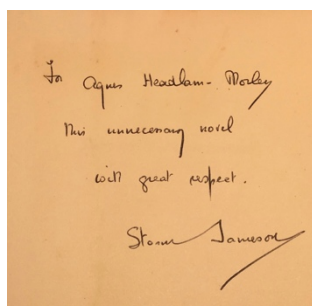 For Agnes Headlam-Morley
this unnecessary novel
with great respect.
Storm Jameson